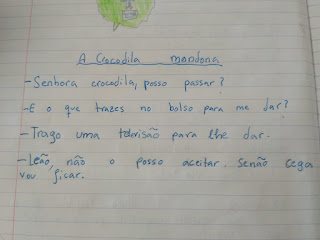 A Crocodila mandona
- Senhora crocodila, posso passar?
- E o que trazes no bolso para me dar?
- Trago uma televisão para lhe dar.
- Leão, não o posso aceitar. Senão cega
vou ficar.